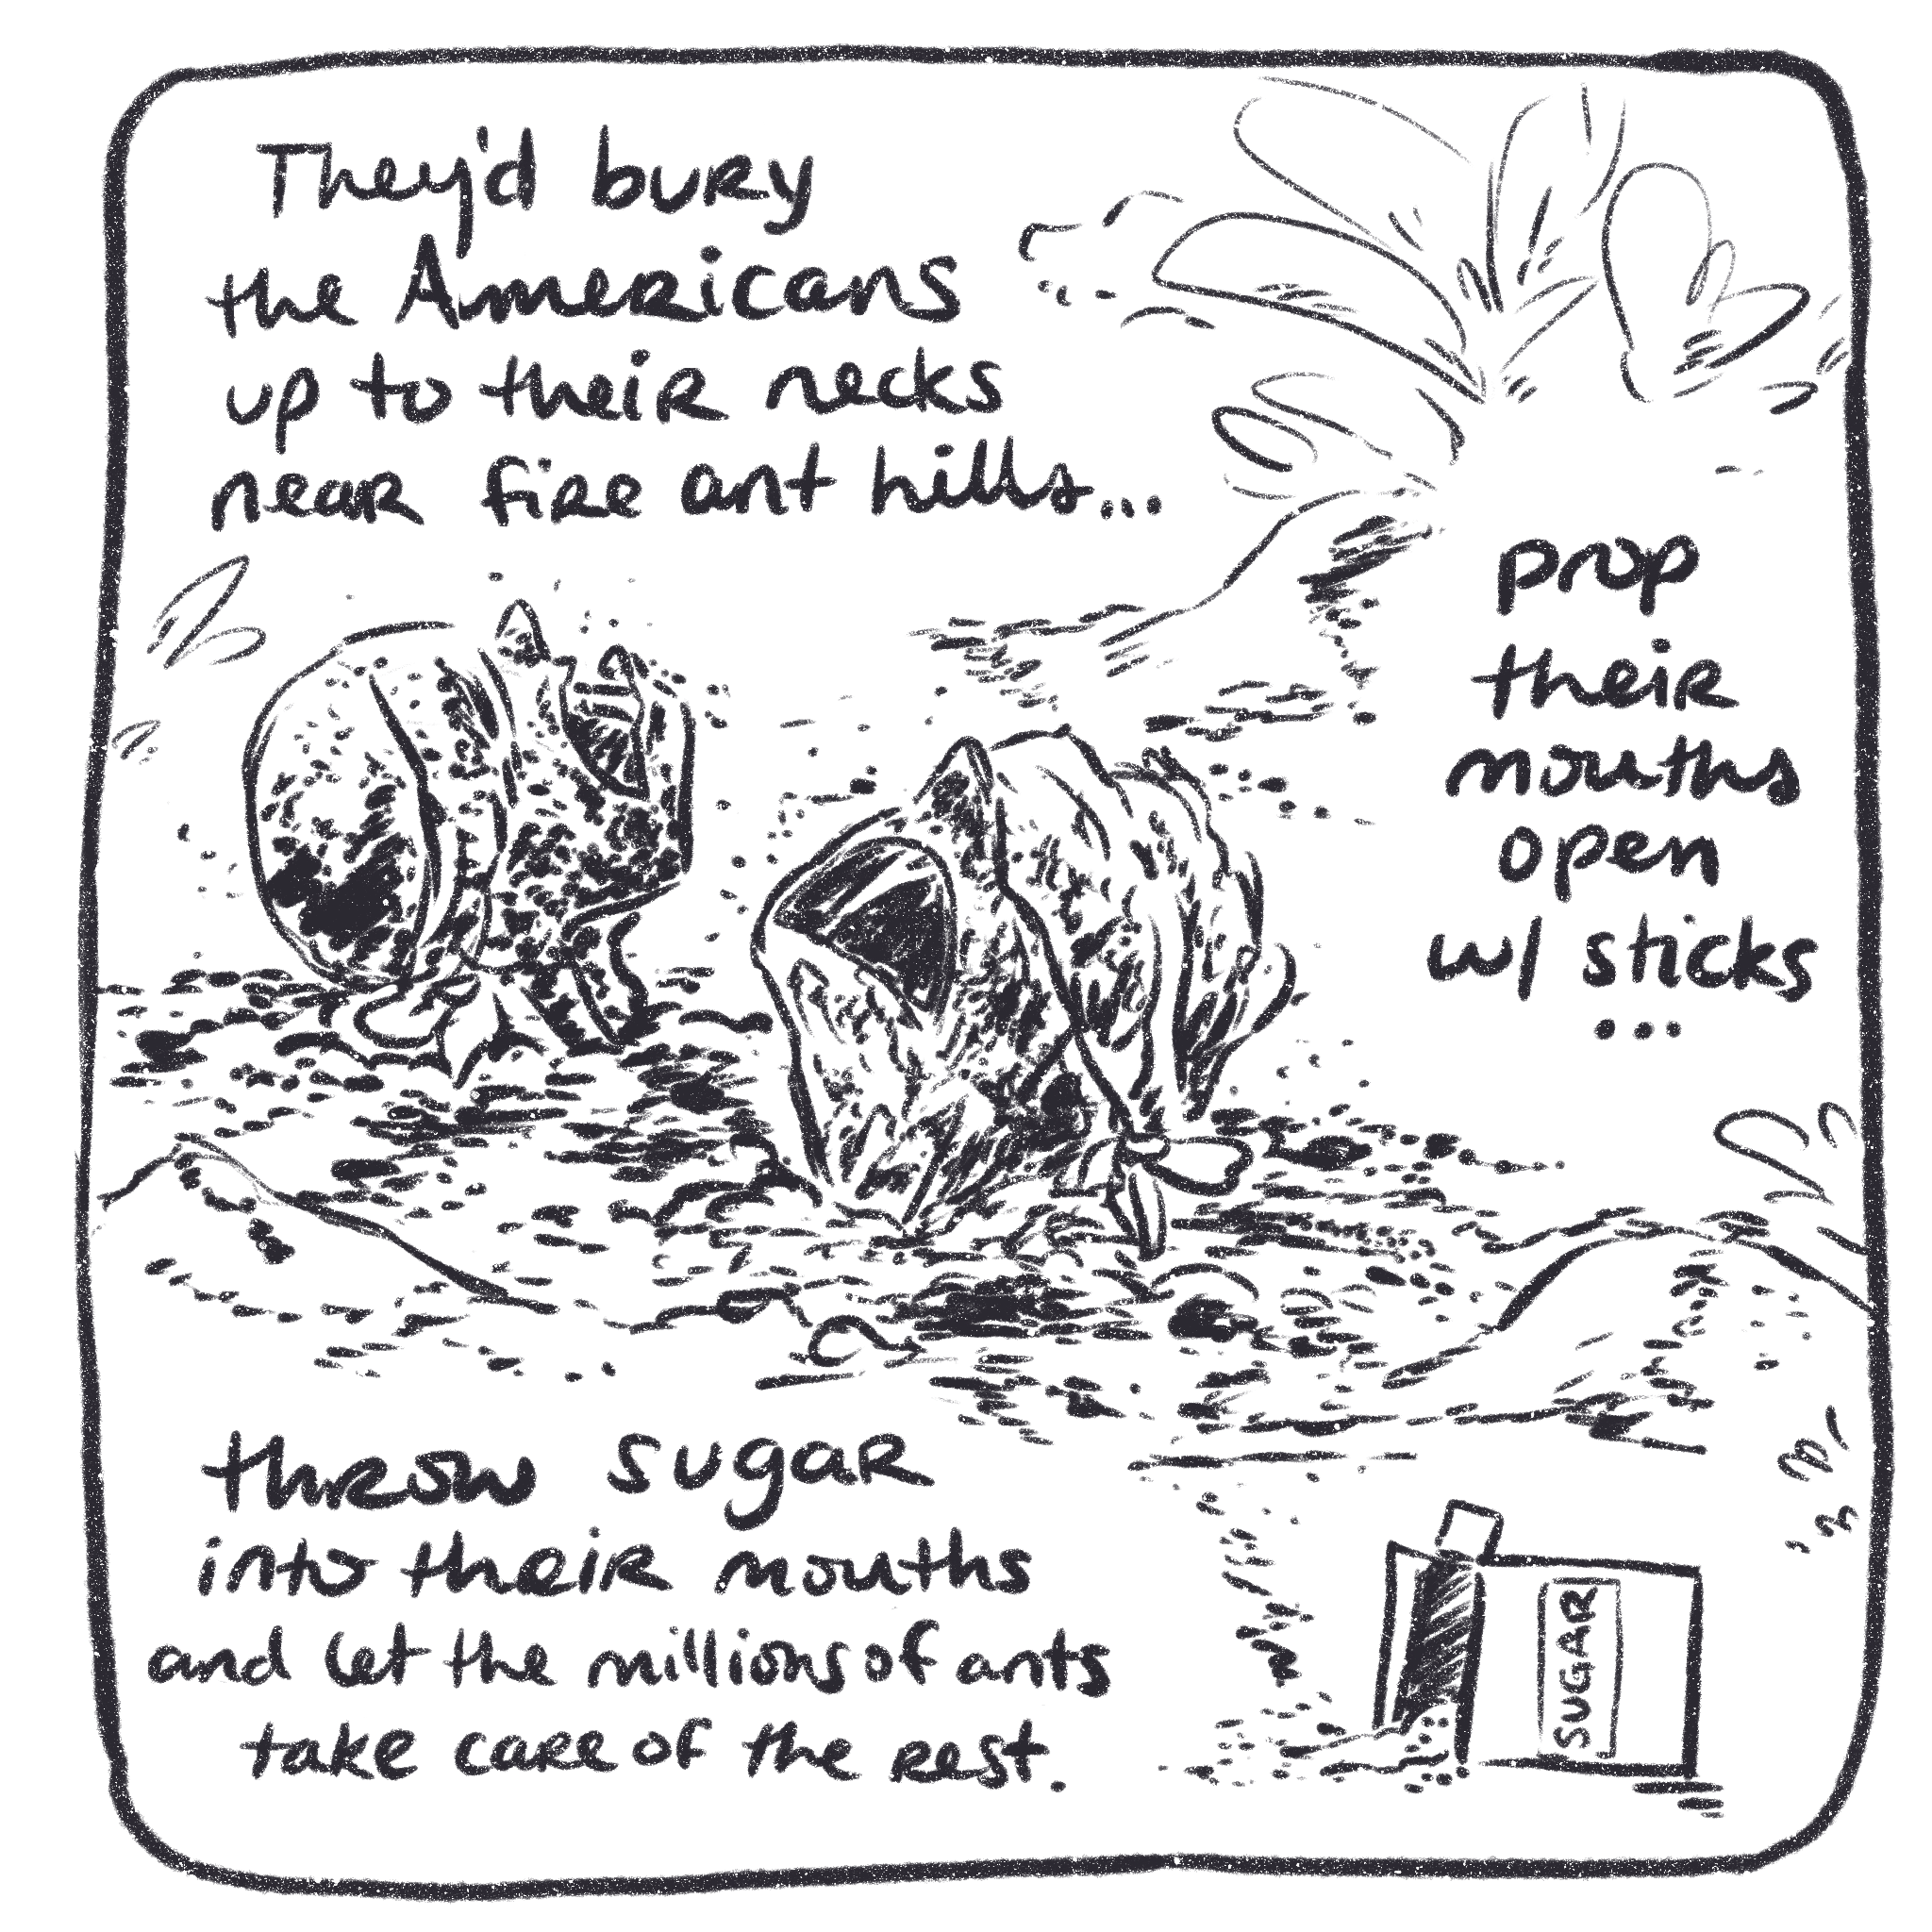 They'd bury
the Americans
up to their necks
near fire ant hills...
prop
their
mouths
open
w/ sticks
...
throw sugar
into their mouths
and let the millions of ants
take care of the rest.
SUGAR